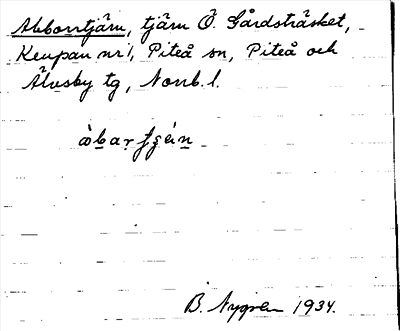 Abborrtjärn, tjärn Ö. Gårdsträsket,
Keupan nr 1, Piteå sn, Piteå och
Älvsby tg, Norrb. l.
B. Nygren 1934.